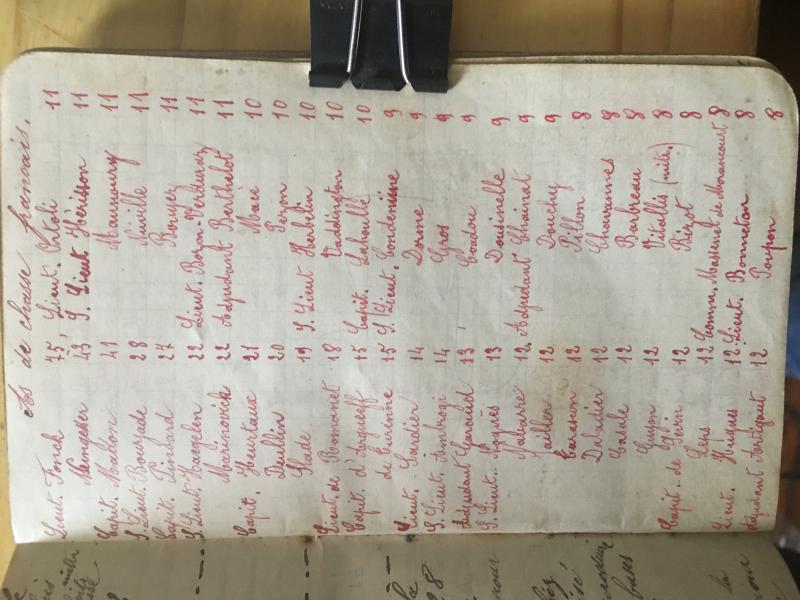 As de chasse français.
Lieut. Fonck 75, Lieut. Vitali 11
Nungesser 43 S. Lieut Hérisson 11
Capit. Madon 41 Maunoury 11
S. Lieut. Bourjade 28 Niuville 11
Capit. Pinsard 27 11
S. Lieut. Haegelen 22 Lieut. 11
Marinovich 22 Adjudant Berthelot 11
Capit. Heurtaux 21 Macé 10
Deullin 20 Peron 10
Slade 19 S. Lieut Herbelin 10
Lieut. de 18 Waddington 10
Capit. d'Argueeff 15 Capit. Lahoulle 10
de Turenne 15 S. Lieut. Condemine 9
Lieut. Sardier 14 Dorme 9
S. Lieut. Ambrogi 14 Gros 9
Adjudant Garaud 13 Coadou 9
S. Lieut. Noguès 13 Dousinelle 9
Navarre 12. Adjudant Chainat 9
Jailler 12 Douchy 9
Tarascon 12 Pillon 8
Daladier 12 Chavannes 8
Casale 12 Barbreau 8
Guyon 12 Vitallis (mitr.) 8
Capit. de Sevin 12 Rizot 8
Leps 12 Comm. Massenet de Marancourt 8
Lieut. Hugues 12 Lieut. Bonneton 8
Adjudant Artigaut 12 Poupon 8